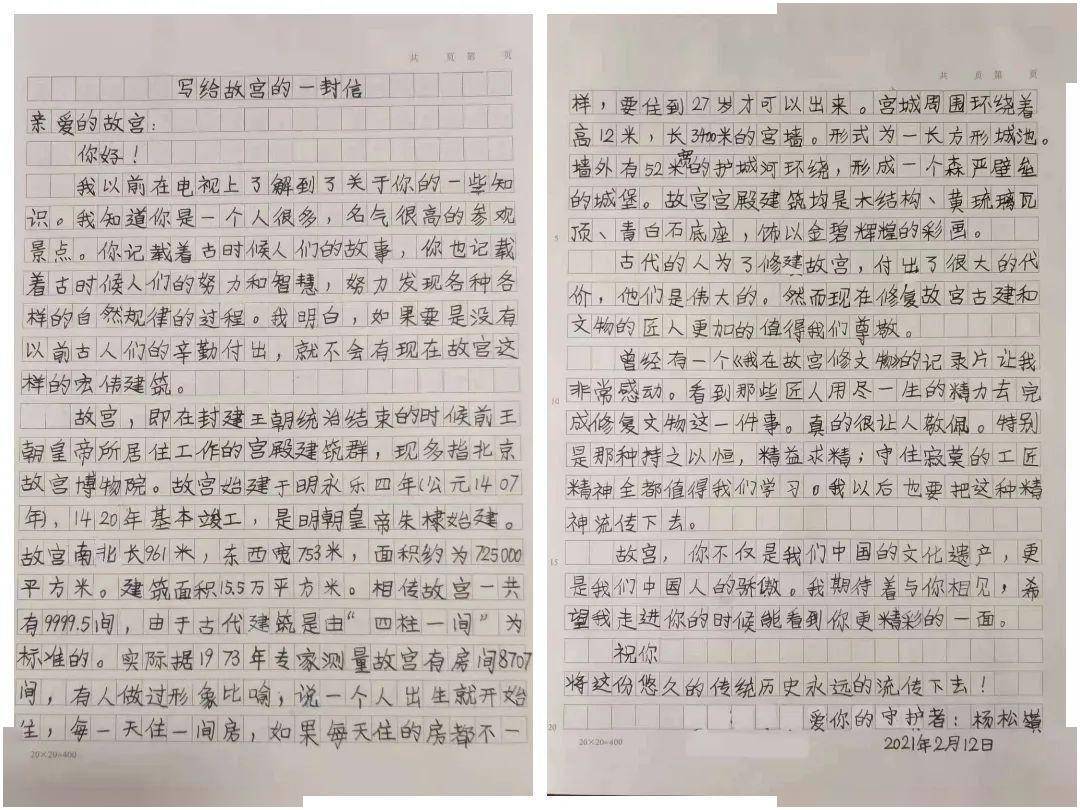 共 页 第 页
写给故宫的一封信
亲爱的故宫：
你好！
我以前在电视上了解到了关于你的一些知
识。我知道你是一个人很多，名气很高的参观
景点。你记载着古时候人们的故事，你也记载
着古时候人们的努力和智慧，努力发现各种各
样的自然规律的过程。我明白，如果要是没有
以前古人们的辛勤付出，就不会有现在故宫这
样的宏伟建筑。
故宫，即在封建王朝统治结束的时候前王
朝皇帝所居住工作的宫殿建筑群，现多指北京
故宫博物院。故宫始建于明永乐四年(公元1407
年)，1420年基本竣工，是明朝皇帝朱棣始建。
故宫南北长961米，东西宽753米，面积约为725000
平方米。建筑面积15.5万平方米。相传故宫一共
有9999.5间，由于古代建筑是由“四柱一间”为
标准的。实际据1973年专家测量故宫有房间8707
间，有人做过形象比喻；说一个人出生就开始
生，每一天住一间房，如果每天住的房都不一
20×20=400
共 页 第 页
样，要住到27岁才可以出来。宫城周围环绕着
高12米，长3400米的宫墙。形式为一长方形城池。
墙外有52米宽的护城河环绕，形成一个森严壁垒
的城堡。故宫宫殿建筑均是木结构、黄琉璃瓦
5
顶、青白石底座，饰以金碧辉煌的彩画。
古代的人为了修建故宫，付出了很大的代
价，他们是伟大的。然而现在修复故宫古建和
文物的匠人更加的值得我们尊敬。
曾经有一个《我在故宫修文物》的记录片让我
10
非常感动。看到那些匠人用尽一生的精力去完
成修复文物这一件事。真的很让人敬佩。特别
是那种持之以恒，精益求精；守住寂寞的工匠
精神全都值得我们学习。我以后也要把这种精
神流传下去。
15
故宫，你不仅是我们中国的文化遗产，更
是我们中国人的骄傲。我期待着与你相见，希
望我走进你的时候能看到你更精彩的一面。
祝你
将这份悠久的传统历史永远的流传下去！
20
爱你的守护者：杨松
20×20=400
2021年2月12日